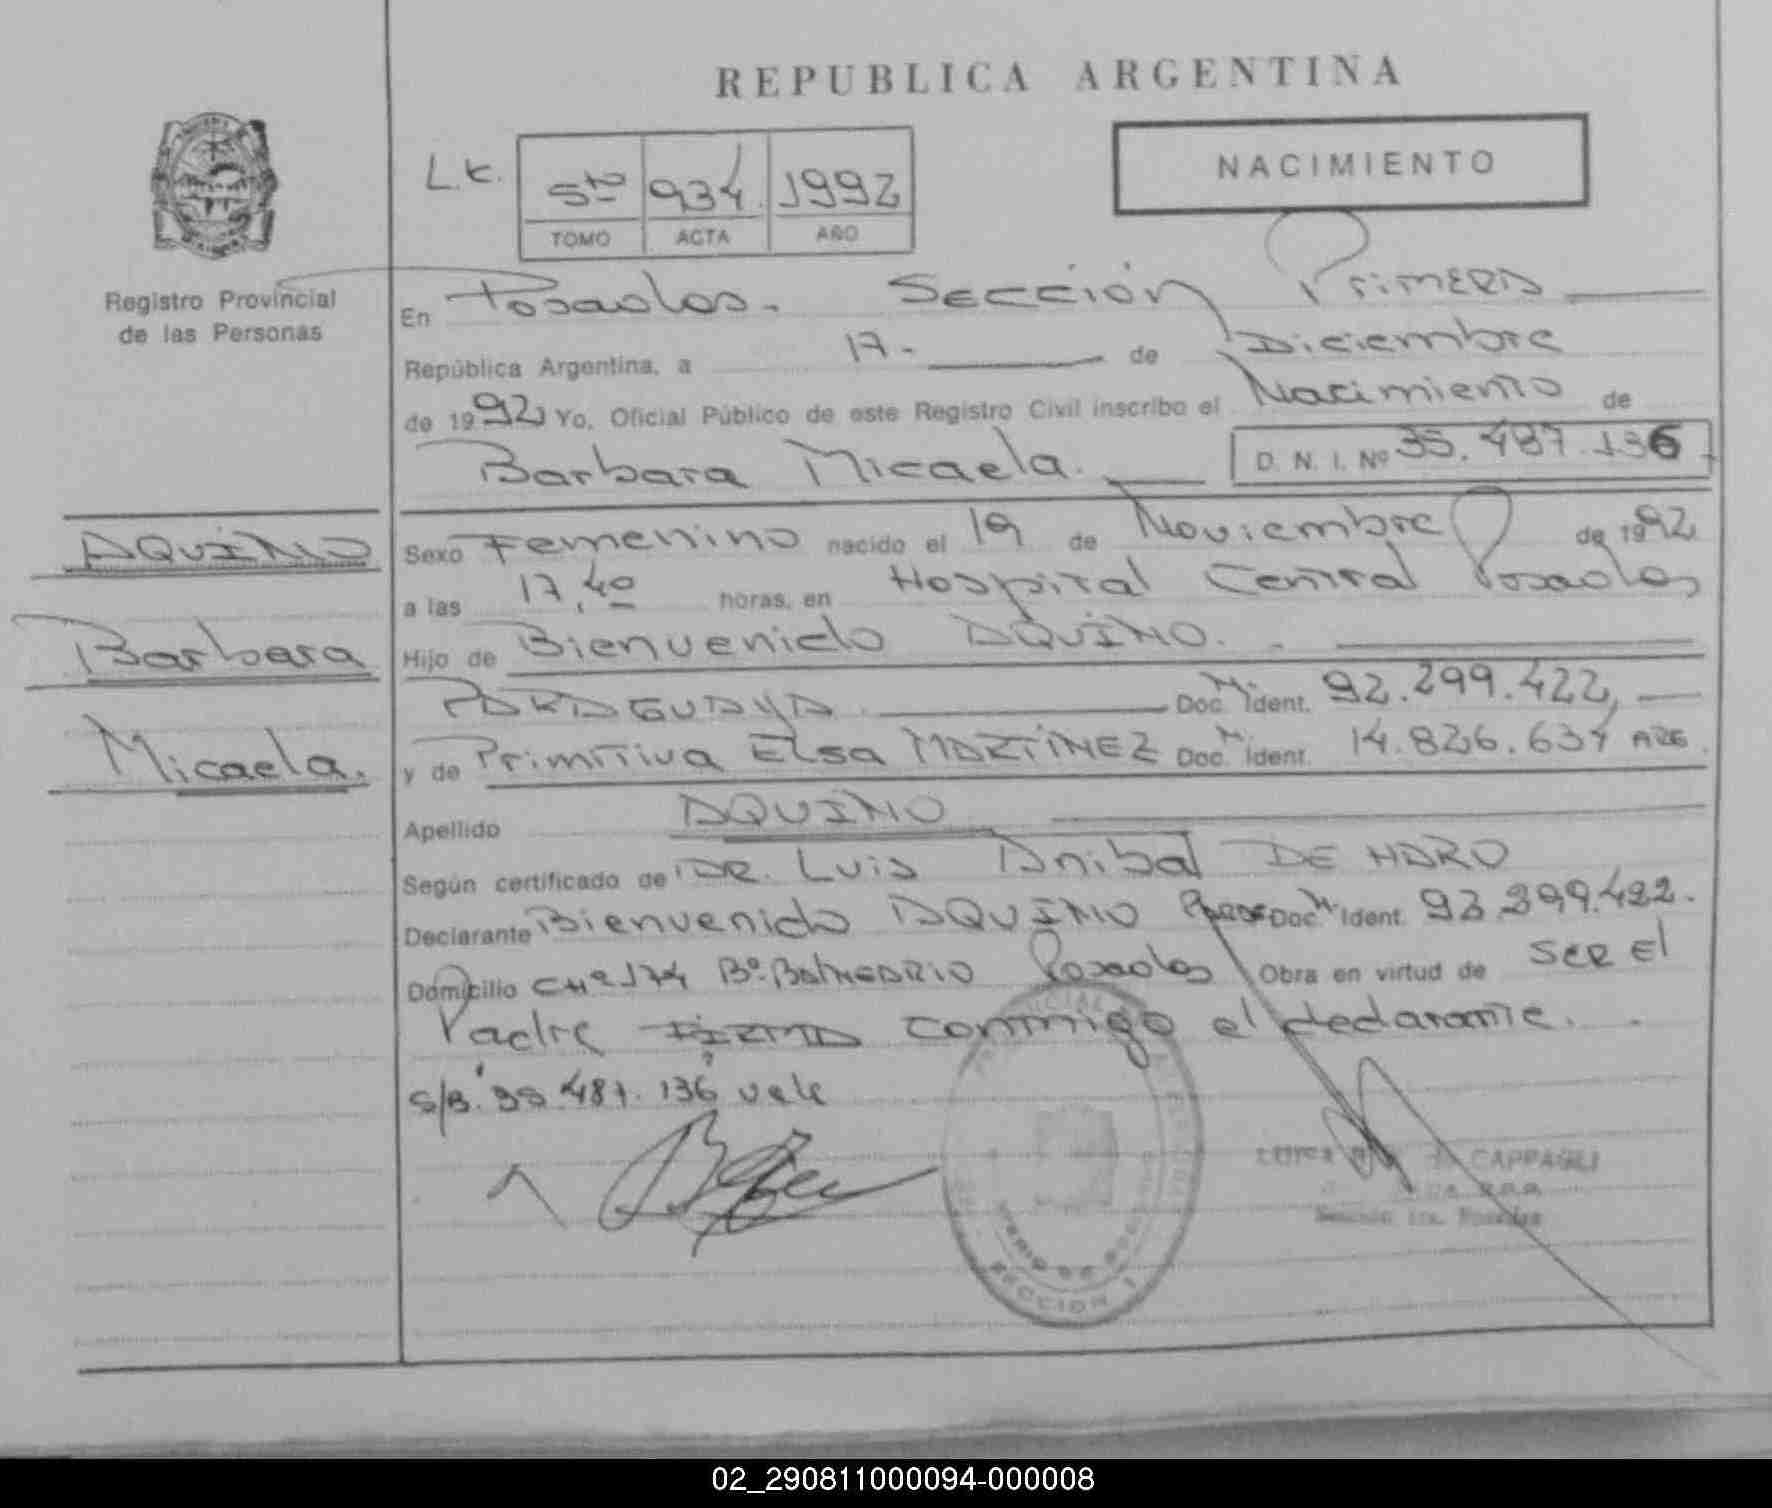 REPUBLICA ARGENTINA
NACIMIENTO
L.K. 5to 934 1992
TOMO ACTA AÑO
Registro Provincial
de las Personas
En Posadas. Sección Primera
República Argentina, a 17 - de Diciembre
de 1992 Yo, Oficial Público de este Registro Civil inscribo el Nacimiento de
Barbara Micaela. D. N. I. Nº 35.487.136
AQUINO
Barbara
Micaela.
Sexo Femenino nacido el 19 de Noviembre de 1992
a las 17,40 horas, en Hospital Central Posadas
Hijo de Bienvenido AQUINO.
PARAGUAYA Doc. M. Ident. 92.299.422,
y de Primitiva Elsa MARTINEZ Doc. M. Ident. 14.826.634 ARG.
Apellido AQUINO
Según certificado de DR. Luis Anibal DE HARO
Declarante Bienvenido AQUINO Doc. M. Ident. 93.299.422.
Domicilio CHº 174 Bº. BALNEARIO Posadas Obra en virtud de SER El
Padre FIRMA conmigo el declarante.
S/B. 35.487.136 vale
CAPPAGLI
Sección 1ra. Posadas
SECCION 1
02_290811000094-000008